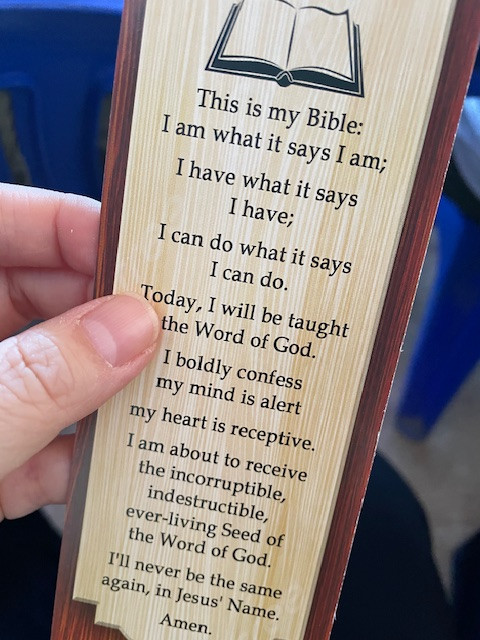 This is my Bible:
I am what it says I am;
I have what it says
I have;
I can do what it says
I can do.
Today, I will be taught
the Word of God.
I boldly confess
my mind is alert
my heart is receptive.
I am about to receive
the incorruptible,
indestructible,
ever-living Seed of
the Word of God.
I'll never be the same
again, in Jesus' Name.
Amen.